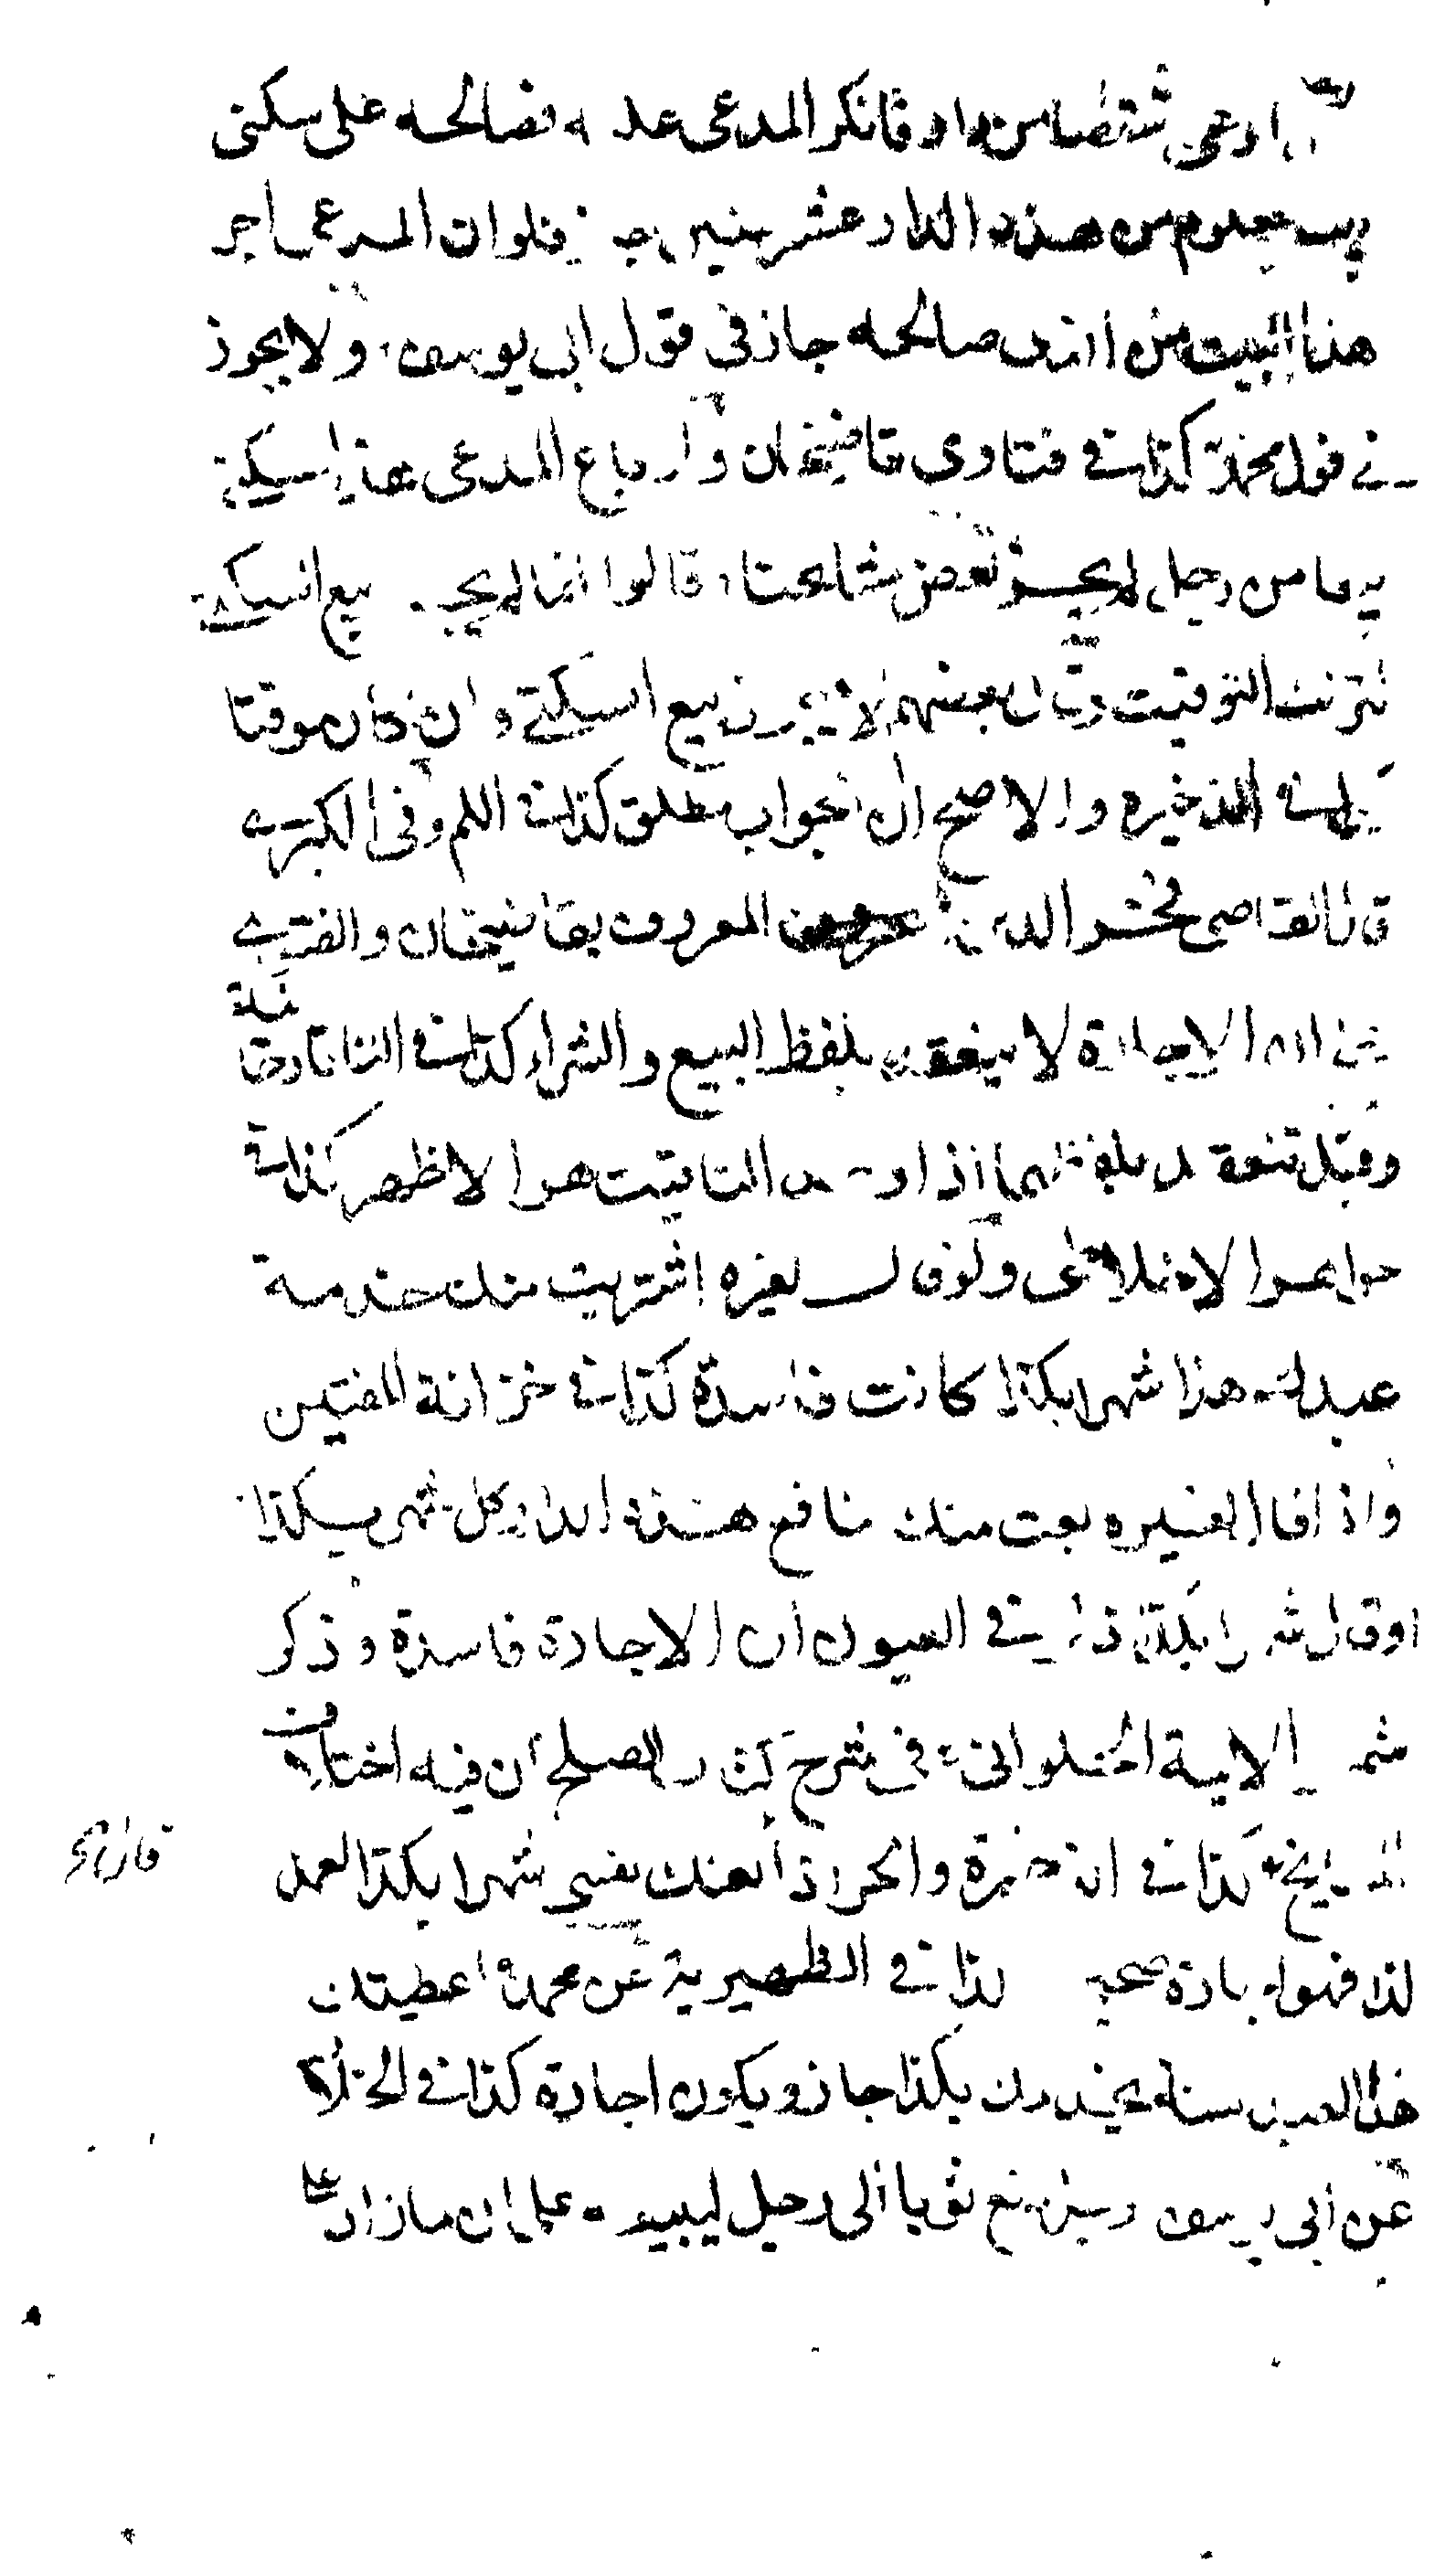 ادعى شقصا من دار فانكر المدعى عليه فصالحه على سكنى
بيت معلوم من هذه الدار عشر سنين جاز فلو ان المدعى اجر
هذا البيت من الذى صالحه جاز فى قول ابى يوسف ولا يجوز
فى قول محمد كذا فى فتاوى قاضيخان ولو باع المدعى هذا السكنى
بيعا من رجل لم يجز بعض مشايخنا قالوا انما لم يجز بيع السكنى
لترك التوقيت وقال بعضهم لا يجوز بيع السكنى وان كان موقتا
كذا فى الذخيره والاصح ان الجواب مطلق كذا فى وفى الكبرى
قال القاضى فخر الدين المعروف بقاضيخان والفتوى
على ان الاجارة لا ينعقد بلفظ البيع والشراء كذا فى التتارخانية
وقيل تنعقد بلفظهما اذا وجد التاقيت هو الاظهر كذا فى
جواهر الاخلاطى ولو قال لغيره اشتريت منك خدمة
عبدك هذا شهرا بكذا كانت فاسدة كذا فى خزانة المفتين
واذا قال لغيره بعت منك منافع هذه الدار كل شهر بكذا
او قال شهرا بكذا ذكر فى العيون ان الاجارة فاسدة وذكر
شمس الايمة الحلوانى فى شرح كتاب الصلح ان فيه اختلاف
المشايخ كذا فى الذخيرة والحر اذا قال بعتك نفسى شهرا بكذا لعمل
كذا فهو اجارة صحيحة كذا فى الظهيرية عن محمد اعطيتك
هذا العبد سنة يخدمك بكذا جاز ويكون اجارة كذا فى الخلاصة
عن ابى يوسف رجل دفع ثوبا الى رجل ليبيعه على ان ما زاد على